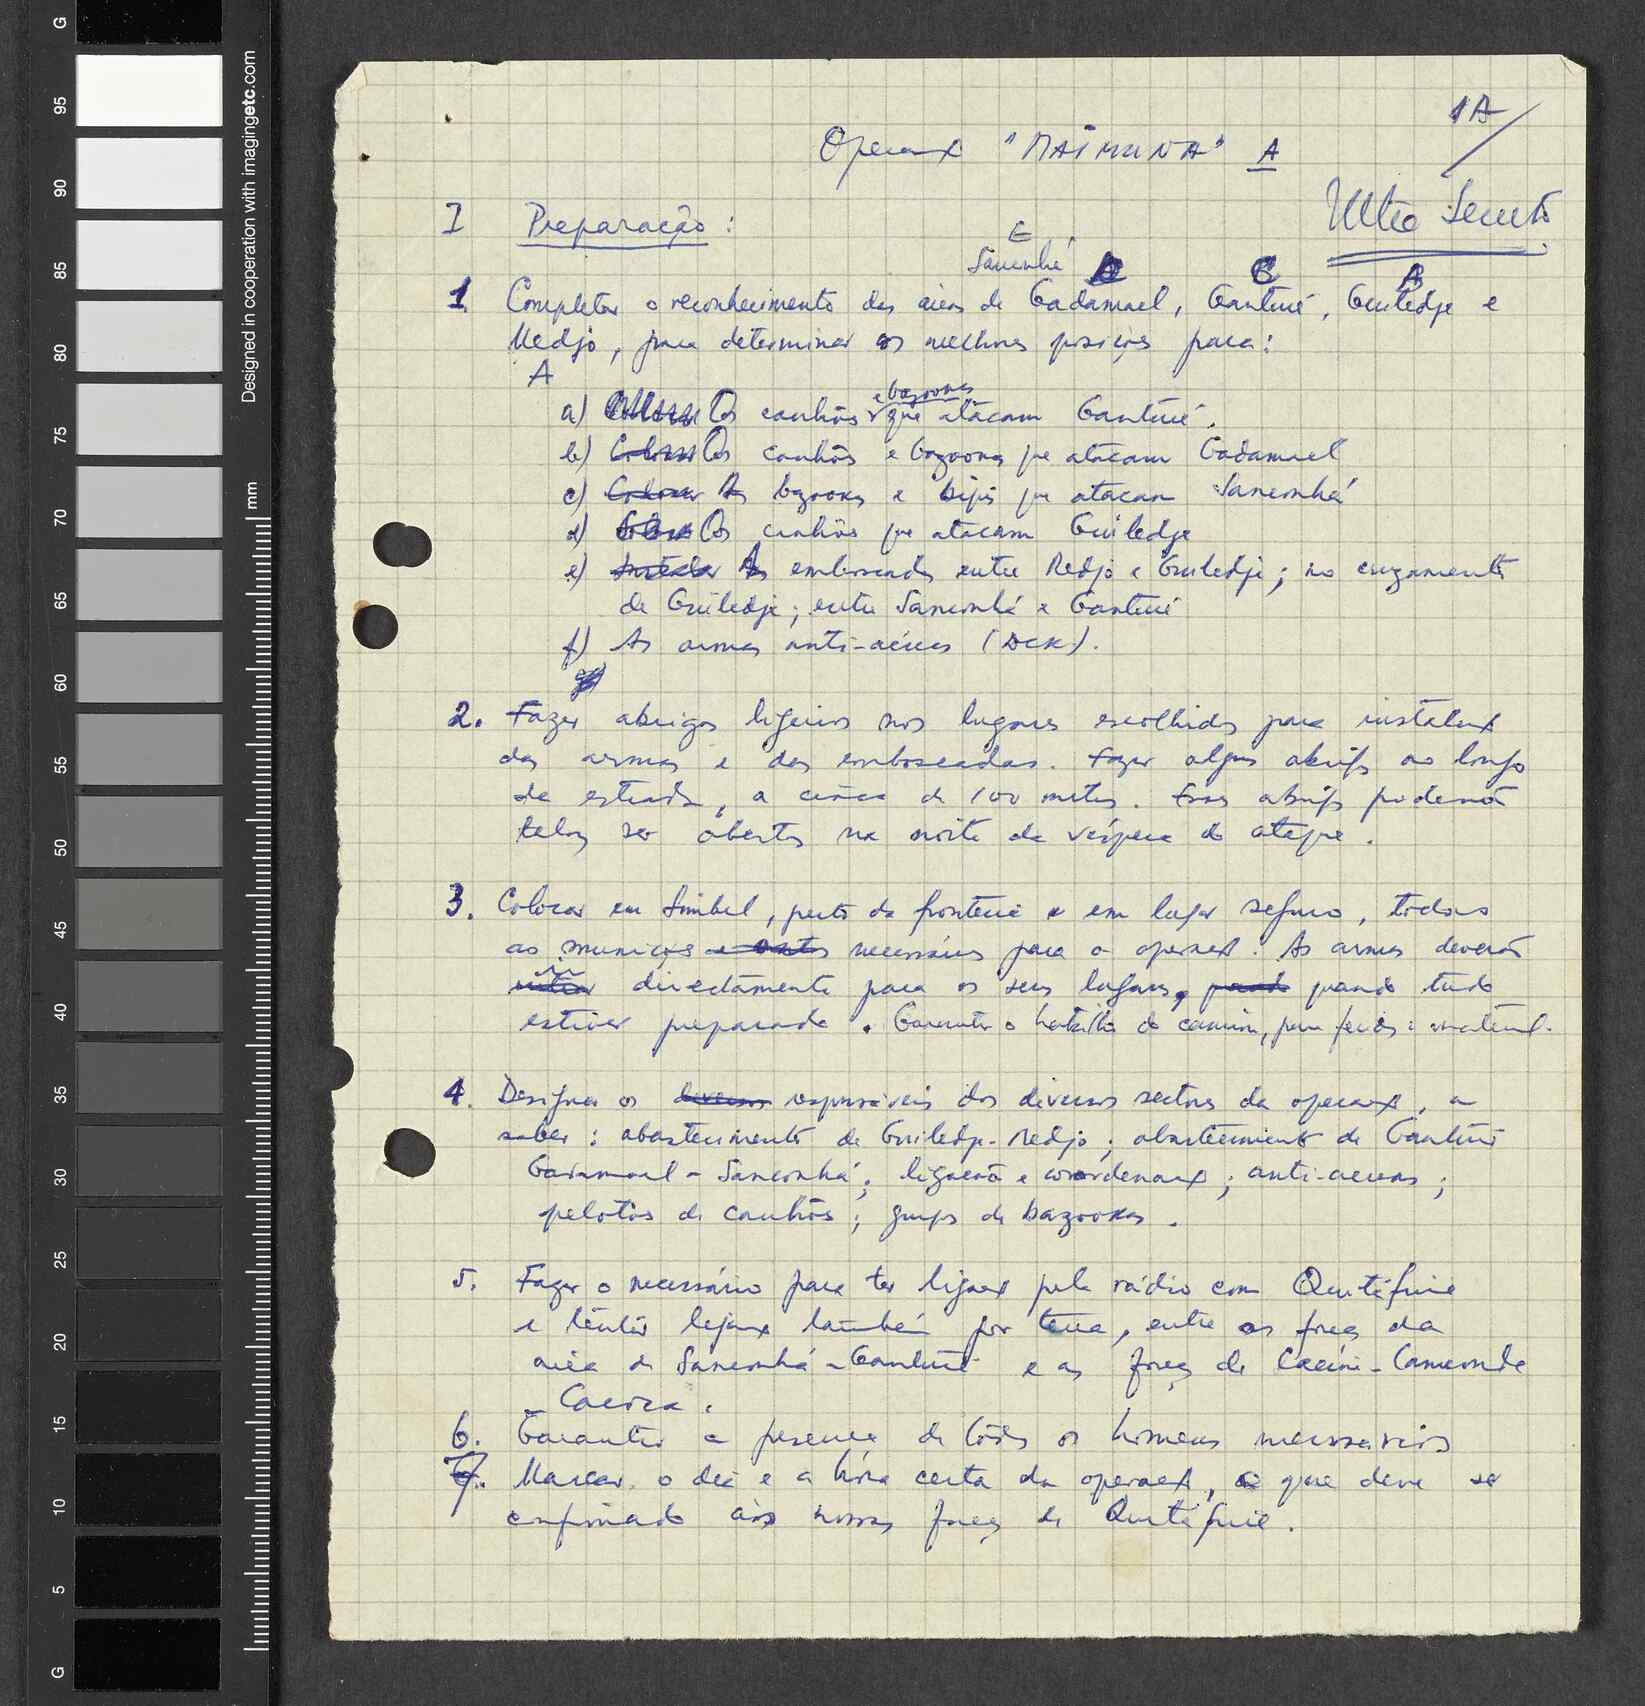 1A
Operação "MAIMUNA" A
Ultra Secreto
I Preparação:
E
Sanconhá
C
1. Completar o reconhecimento das áreas de Gadamael, Ganturé, Guiledje e
Medjo, para determinar as melhores posições para:
A
a) Os canhões e bazookas que atacam Ganturé.
b) Os canhões e bazookas que atacam Gadamael
c) Colocar As bazookas e bipés que atacam Sanconhá
d) Os canhões que atacam Guiledje
e) Instalar As emboscadas entre Medjo e Guiledje; no cruzamento
de Guiledje; entre Sanconhá e Ganturé
f) As armas anti-aéreas (DCK).
2. Fazer abrigos ligeiros nos lugares escolhidos para instalação
das armas e das emboscadas. Fazer alguns abrigos ao longo
da estrada, a cêrca de 100 metros. Esses abrigos poderão
talvez ser abertos na noite da véspera do ataque.
3. Colocar em Simbel, perto da fronteira e em lugar seguro, todas
as munições necessárias para a operação. As armas deverão
ir directamente para os seus lugares, quando tudo
estiver preparado. Garantir o trabalho do camião, para feridos e material.
4. Designar os diversos responsáveis dos diversos sectores da operação, a
saber: abastecimento de Guiledje-Medjo; abastecimento de Ganturé
Gadamael - Sanconhá; ligação e coordenação; anti-aéreas;
pelotões de canhões; grupos de bazookas.
5. Fazer o necessário para ter ligação pela rádio com Quitáfine
e tentar ligação também por terra, entre as forças da
área de Sanconhá-Ganturé e as forças de Cacine-Cameconde
- Cacoca.
6. Garantir a presença de todos os homens necessários
7. Marcar o dia e a hora certa da operação, o que deve ser
confirmado às nossas forças de Quitáfine.
Designed in cooperation with imagingetc.com
mm
G
95
90
85
80
75
70
65
60
55
50
45
40
35
30
25
20
15
10
5
G